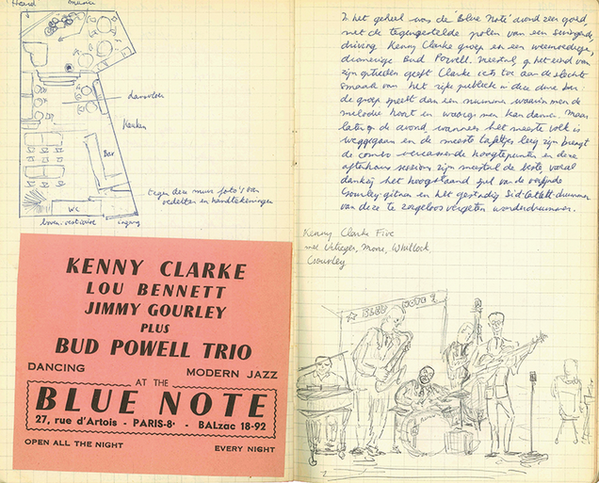 Haard
dansvloer
Keuken
Bar
WC
boven: vestiaire
ingang
tegen den muur foto's van
vedetten en handtekeningen
KENNY CLARKE
LOU BENNETT
JIMMY GOURLEY
PLUS
BUD POWELL TRIO
DANCING MODERN JAZZ
AT THE
BLUE NOTE
27, rue d'Artois - PARIS-8e - BALzac 18-92
OPEN ALL THE NIGHT EVERY NIGHT
In 't geheel was de 'Blue Note' avond zeer goed,
met de tegengestelde polen van een swingende,
driving Kenny Clarke groep en een weemoedige,
dromerige Bud Powell. Meestal op het eind van
zijn optreden geeft Clarke iets toe aan de slechte
smaak van het rijke publiek in deze dure bar:
de groep speelt dan een nummer waarin men de
melodie hoort en waarop men kan dansen. Maar
later op de avond wanneer het meeste volk is
weggegaan en de meeste tafeltjes leeg zijn brengt
de combo verrassende hoogtepunten en deze
afterhours sessions zijn meestal de beste, vooral
dankzij het hoogstaand spel van de verfijnde
Gourley-gitaar en het gestadig Sid Catlett-drummen
van deze te zorgeloos vergeten wonderdrummer.
Kenny Clarke Five
met Urtreger, More, Whitlock
Gourley
BLUE NOTE